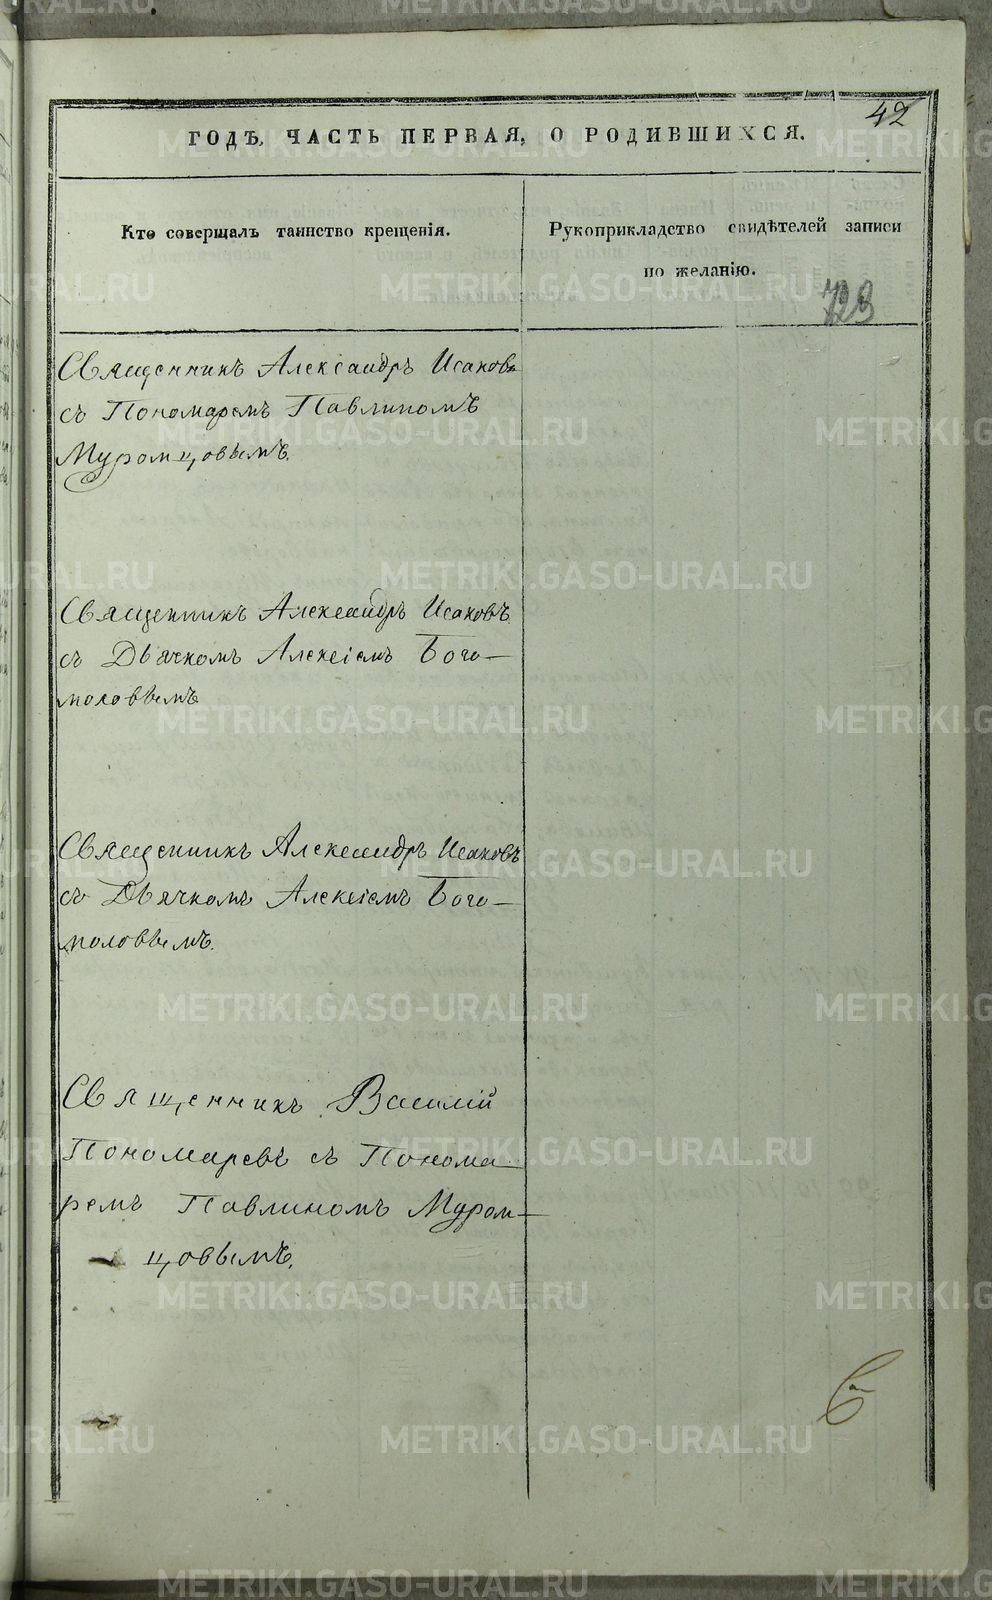 42
ГОДѢ, ЧАСТЬ ПЕРВАЯ, О РОДИВШИХСЯ.
Кто совершалъ таинство крещенія.
Рукоприкладство свидѣтелей записи
по желанію.
723
Священникъ Александръ Исаковъ
съ Пономаремъ Павлиномъ
Муромцовымъ.
Священникъ Александръ Исаковъ
съ Дьячкомъ Алексіемъ Бого-
моловымъ
Священникъ Александръ Исаковъ
съ Дьячкомъ Алексіемъ Бого-
моловымъ.
Священникъ Василій
Пономаревъ съ Понома-
ремъ Павлиномъ Муром-
цовымъ.
METRIKI.GASO-URAL.RU